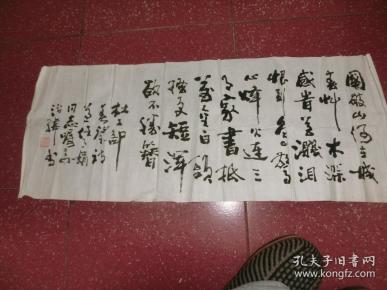 國破山河在城
春草木深
感时花濺泪
恨别鸟驚
心烽火连三
月家書抵
萬金白頭
搔更短渾
欲不勝簪
杜工部
春望詩
同志
书
孔夫子旧书网
www.kongfz.com